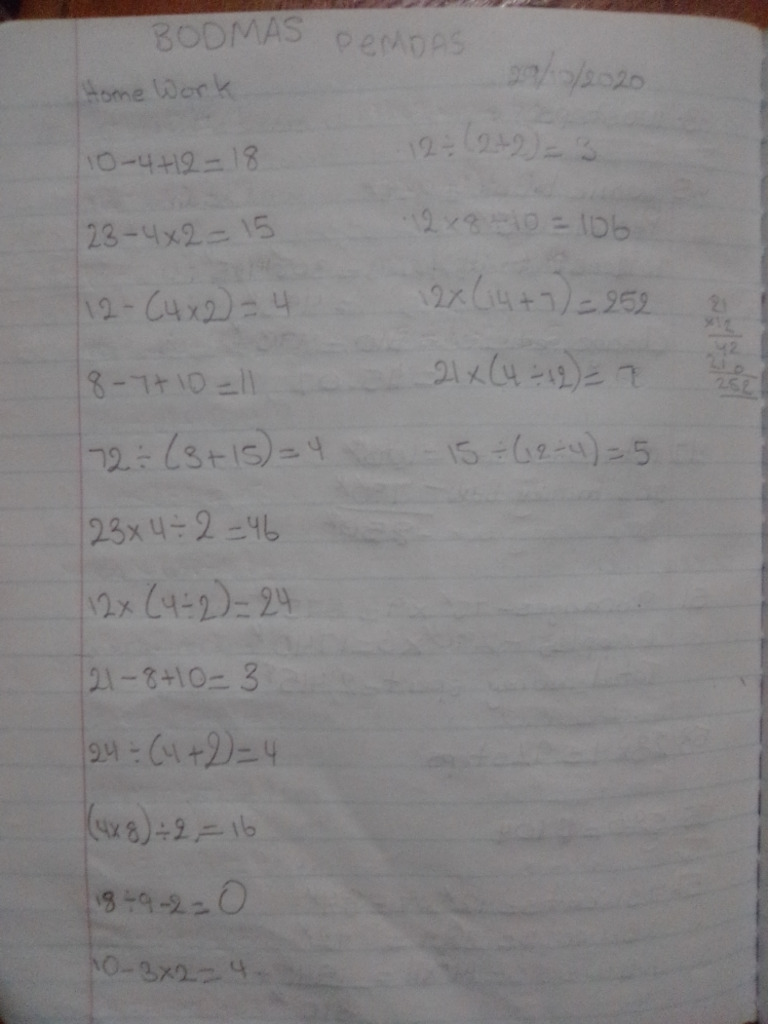 BODMAS PEMDAS
Home Work 29/10/2020
10-4+12=18
23-4×2=15
12-(4×2)=4
8-7+10=11
72÷(3+15)=4
23×4÷2=46
12×(4÷2)=24
21-8+10=3
24÷(4+2)=4
(4×8)÷2=16
18÷9-2=0
10-3×2=4
12÷(2+2)=3
12×8+10=106
12×(14+7)=252
21×(4÷12)=7
15÷(12÷4)=5
21
×12
42
210
252